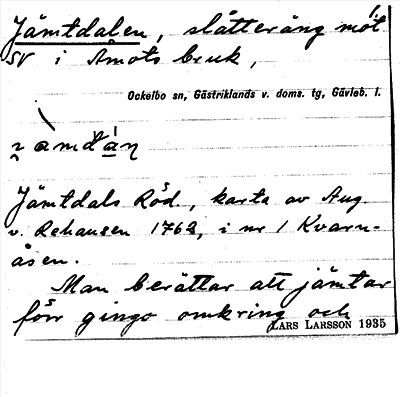 Jämtdalen, slåtteräng mot
SV i Åmots bruk,
Ockelbo sn, Gästriklands v. doms. tg, Gävleb. l.
Jämtdals Röd, karta av Aug.
v. Rehausen 1762, i nr 1 Kvarn-
åsen.
Man berättar att jämtar
förr gingo omkring och
LARS LARSSON 1935